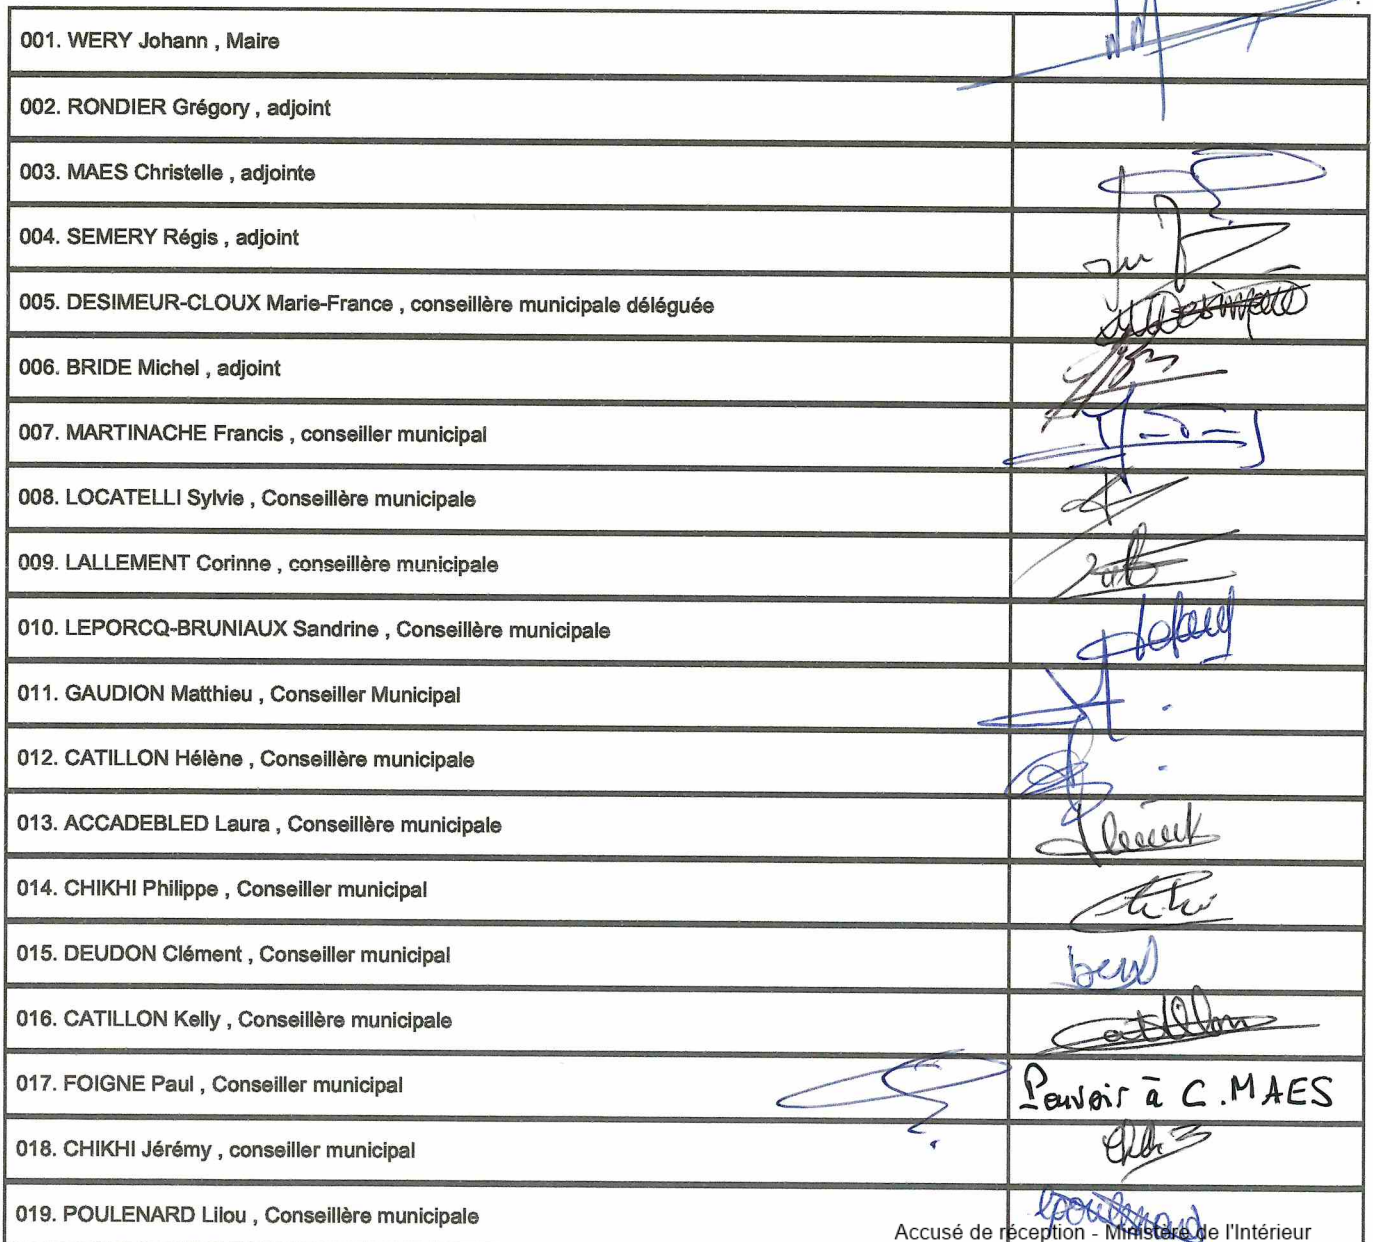 001. WERY Johann , Maire
002. RONDIER Grégory , adjoint
003. MAES Christelle , adjointe
004. SEMERY Régis , adjoint
005. DESIMEUR-CLOUX Marie-France , conseillère municipale déléguée
006. BRIDE Michel , adjoint
007. MARTINACHE Francis , conseiller municipal
008. LOCATELLI Sylvie , Conseillère municipale
009. LALLEMENT Corinne , conseillère municipale
010. LEPORCQ-BRUNIAUX Sandrine , Conseillère municipale
011. GAUDION Matthieu , Conseiller Municipal
012. CATILLON Hélène , Conseillère municipale
013. ACCADEBLED Laura , Conseillère municipale
014. CHIKHI Philippe , Conseiller municipal
015. DEUDON Clément , Conseiller municipal
016. CATILLON Kelly , Conseillère municipale Catillon
017. FOIGNE Paul , Conseiller municipal Pouvoir à C. MAES
018. CHIKHI Jérémy , conseiller municipal
019. POULENARD Lilou , Conseillère municipale
Accusé de réception - Ministère de l'Intérieur